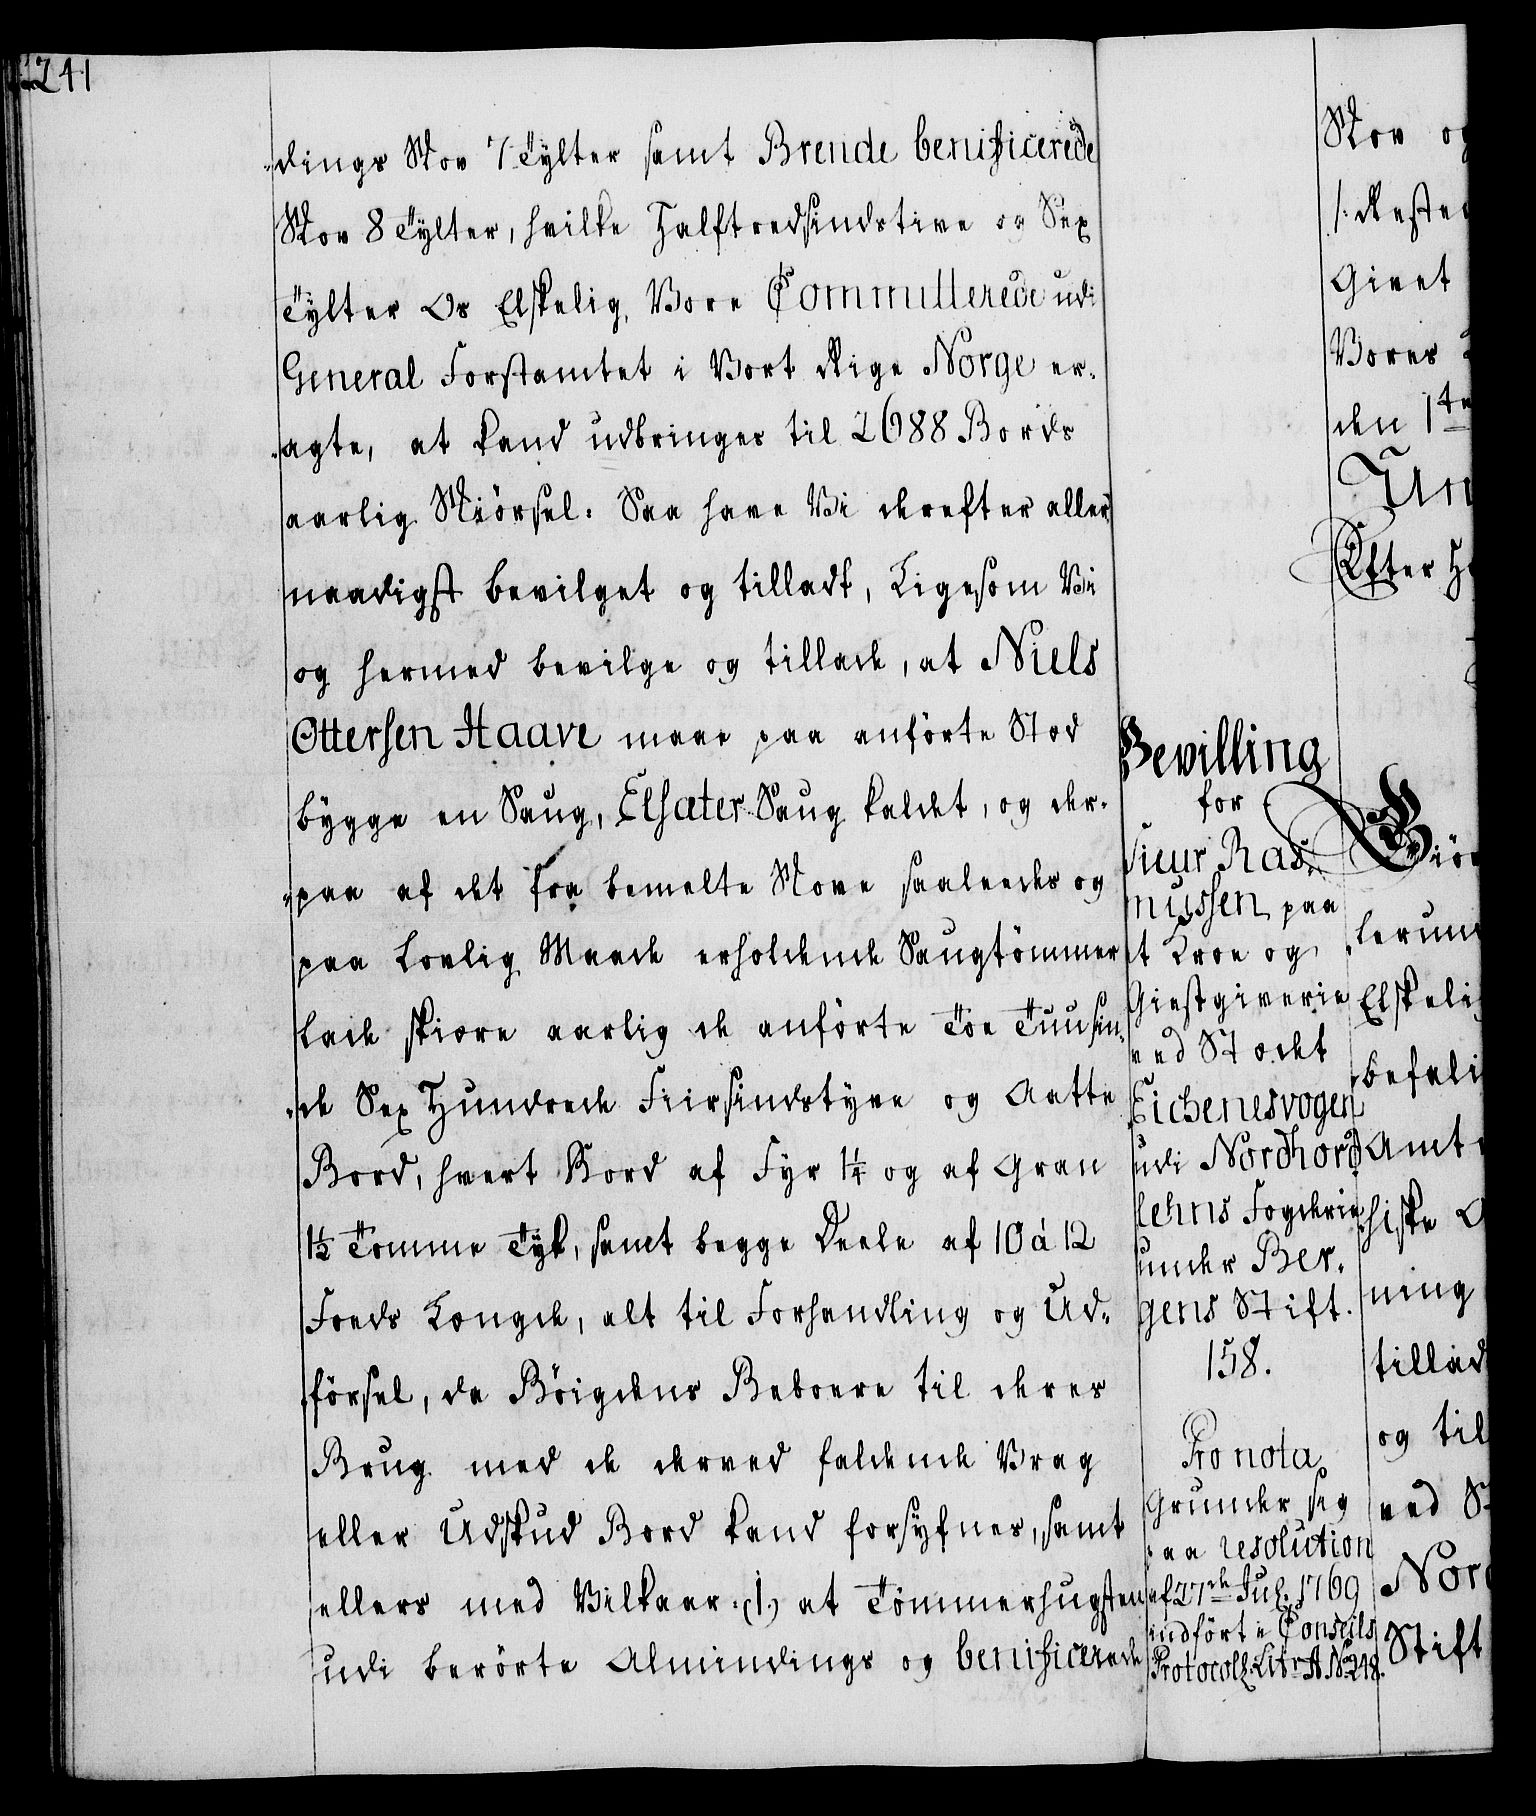 1241
-dings Skov 7 Tylter samt Brende benificerede
Skov 8 Tylter, hvilke Halftredsindstive og Sex
Tylter Os Elskelig, Vore Committerede udi
General Forstamtet i Vort Rige Norge er-
-agte, at kand udbringes til 2688 Bords
aarlig Skiörsel. Saa have Vi derefter aller-
naadigst bevilget og tilladt, Ligesom Vi
og hermed bevilge og tillade, at Niels
Ottersen Haave maae paa anförte Stod
bygge en Saug, Elsæter Saug kaldet, og der-
-paa af det fra bemelte Skove saaledes og
paa Lovlig Maade erholdende Saugtömmer
lade skiære aarlig de anförte Toe Tuusin-
-de Sex Hundrede Fiirsindstyve og Aatte
Bord, hvert Bord af Fyr 1¼ og af Gran
1½ Tomme Tyk, samt begge Deele af 10 á 12
Foeds Længde, alt til Forhandling og Ud-
-försel, da Böigdens Beboere til deres
Brug med de derved faldende Vrag
eller Udskud Bord kand forsyfnes, samt
ellers med Vilkaar (1.) at Tömmerhugsten
udi berörte Almindings og benificerede
Bevilling
for
Siuur Ras-
mussen paa
et Kroe og
Giestgiverie
ved Stædet
Eichenesvogen
udi Nordhord-
lehns Fogderie
under Ber-
gens Stift.
158.
Pro nota
Grunder sig
paa resolution
af 27de Jul. 1769
indfört i Conseils
Protocoll. Litr. A No 248.
Skov og
Givet
Vores
den 1te
Un
Efter
Giör
lerum
Elskeli
befali
Amt
hiske
ning
tillad
og til
ved St
Nord
Stift